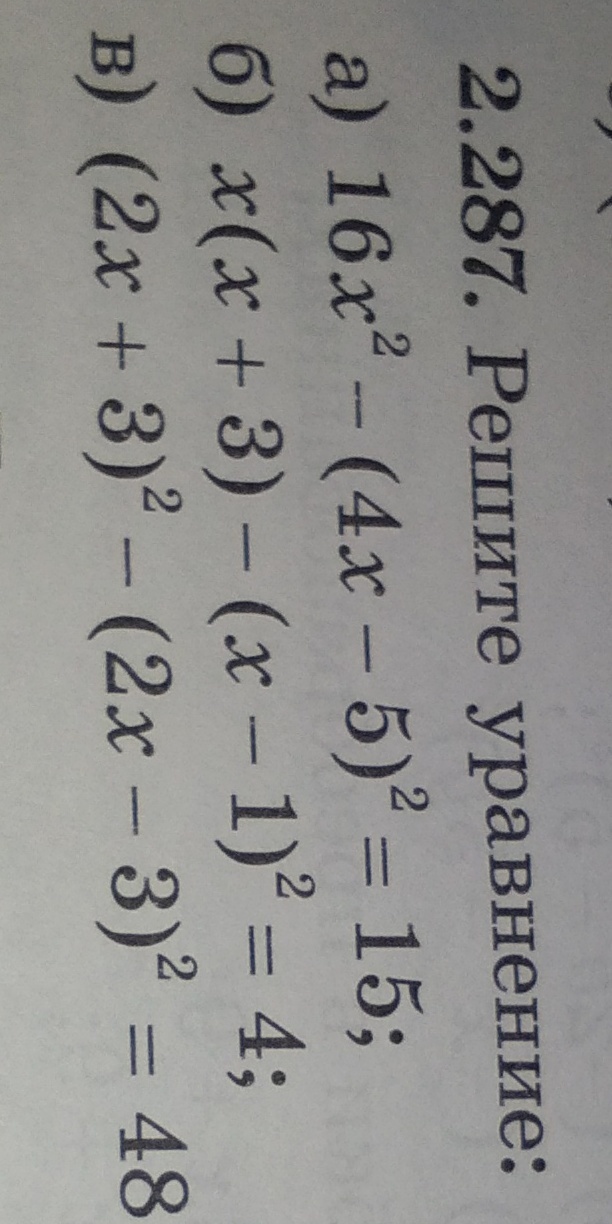 2.287. Решите уравнение:
а) 16x² − (4x − 5)² = 15;
б) x(x + 3) − (x − 1)² = 4;
в) (2x + 3)² − (2x − 3)² = 48